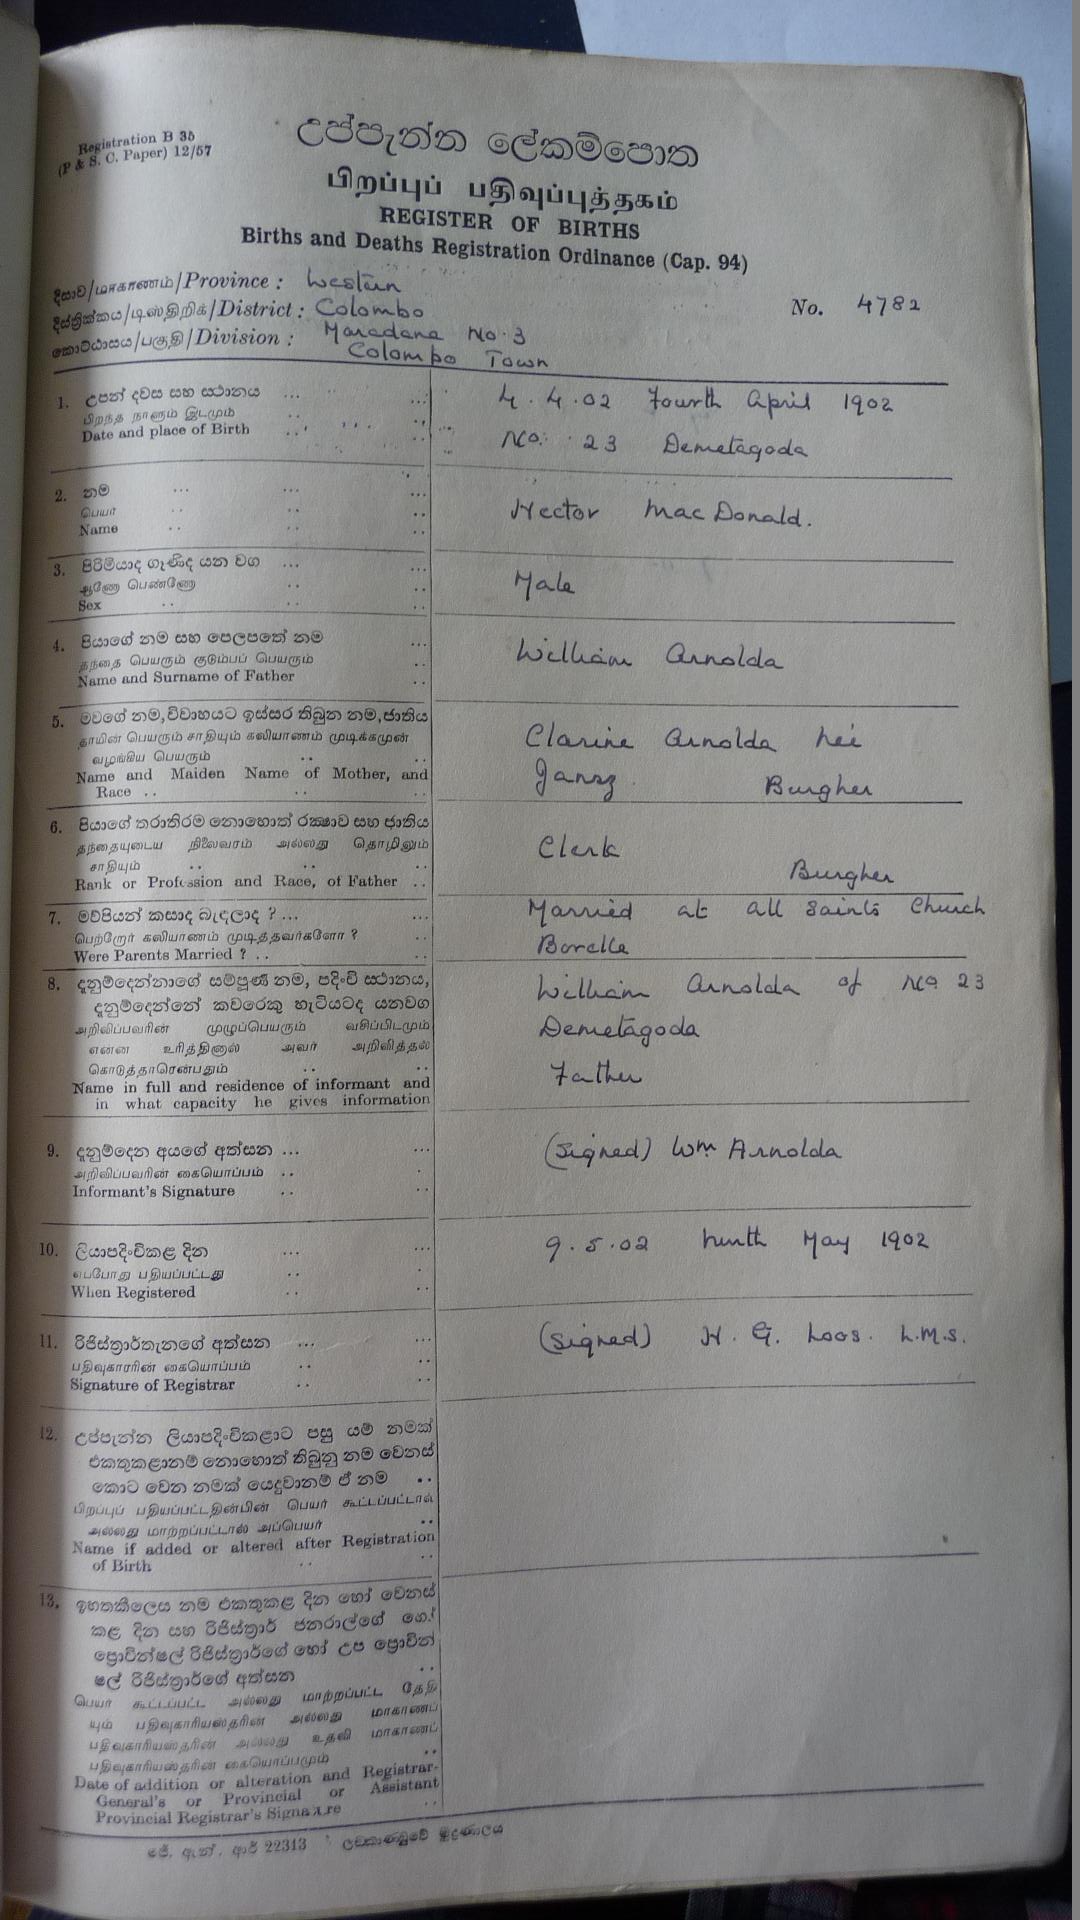 Registration B 35
(P & S. C. Paper) 12/57
උප්පැන්න ලේකම්පොත
பிறப்புப் பதிவுப்புத்தகம்
REGISTER OF BIRTHS
Births and Deaths Registration Ordinance (Cap. 94)
දිසාව/மாகாணம்/Province : Western
දිස්ත්‍රික්කය/டிஸ்திறிக்/District : Colombo
No. 4782
කොට්ඨාසය/பகுதி/Division : Maradana No. 3
Colombo Town
1. උපන් දවස සහ ස්ථානය ... ...
பிறந்த நாளும் இடமும் .. ..
Date and place of Birth .. ..
4.4.02 Fourth April 1902
No. 23 Demetagoda
2. නම ... ... ...
பெயர் .. .. ..
Name .. .. ..
Hector MacDonald.
3. පිරිමියාද ගෑණිද යන වග ... ...
ஆணோ பெண்ணோ .. ..
Sex .. .. ..
Male
4. පියාගේ නම සහ පෙලපතේ නම ...
தந்தை பெயரும் குடும்பப் பெயரும் ..
Name and Surname of Father ..
William Arnolda
5. මවගේ නම, විවාහයට ඉස්සර තිබුන නම, ජාතිය
தாயின் பெயரும் சாதியும் கலியாணம் முடிக்கமுன்
வழங்கிய பெயரும் .. ..
Name and Maiden Name of Mother, and
Race .. .. ..
Clarine Arnolda nei
Jansz Burgher
6. පියාගේ තරාතිරම නොහොත් රක්‍ෂාව සහ ජාතිය
தந்தையுடைய நிலைவரம் அல்லது தொழிலும்
சாதியும் .. .. ..
Rank or Profession and Race, of Father ..
Clerk
Burgher
7. මව්පියන් කසාද බැඳලාද ? ... ...
பெற்றோர் கலியாணம் முடித்தவர்களோ ? ..
Were Parents Married ? .. ..
Married at All Saints Church
Borella
8. දැනුම්දෙන්නාගේ සම්පූර්‍ණ නම, පදිංචි ස්ථානය,
දැනුම්දෙන්නේ කවරෙකු හැටියටද යනවග
அறிவிப்பவரின் முழுப்பெயரும் வசிப்பிடமும்
என்ன உரித்தினால் அவர் அறிவித்தல்
கொடுத்தாரென்பதும் .. ..
Name in full and residence of informant and
in what capacity he gives information
William Arnolda of No 23
Demetagoda
Father
9. දැනුම්දෙන අයගේ අත්සන ... ...
அறிவிப்பவரின் கையொப்பம் .. .
Informant's Signature .. ..
(signed) Wm. Arnolda
10. ලියාපදිංචිකළ දින ... ...
எப்போது பதியப்பட்டது .. .
When Registered .. ..
9.5.02 ninth May 1902
11. රිජිස්ත්‍රාර්තැනගේ අත්සන ... ...
பதிவுகாரரின் கையொப்பம் .. ..
Signature of Registrar .. ..
(signed) H. G. Loos. L.M.S.
12. උප්පැන්න ලියාපදිංචිකළාට පසු යම් නමක්
එකතුකළානම් නොහොත් තිබුනු නම වෙනස්
කොට වෙන නමක් යෙදුවානම් ඒ නම ..
பிறப்புப் பதியப்பட்டதின்பின் பெயர் கூட்டப்பட்டால்
அல்லது மாற்றப்பட்டால் அப்பெயர் ..
Name if added or altered after Registration
of Birth .. ..
13. ඉහතකීලෙස නම එකතුකළ දින හෝ වෙනස්
කළ දින සහ රිජිස්ත්‍රාර් ජනරාල්ගේ හෝ
ප්‍රොවින්ෂල් රිජිස්ත්‍රාර්ගේ හෝ උප ප්‍රොවින්
ෂල් රිජිස්ත්‍රාර්ගේ අත්සන ..
பெயர் கூட்டப்பட்ட அல்லது மாற்றப்பட்ட தேதி
யும் பதிவுகாரியஸ்தரின் அல்லது மாகாணப்
பதிவுகாரியஸ்தரின் அல்லது உதவி மாகாணப்
பதிவுகாரியஸ்தரின் கையொப்பமும் ..
Date of addition or alteration and Registrar-
General's or Provincial or Assistant
Provincial Registrar's Signature ..
ජේ. ඇන්. ආර් 22313 ලඩකාණ්ඩුවේ මුද්‍රණාලය